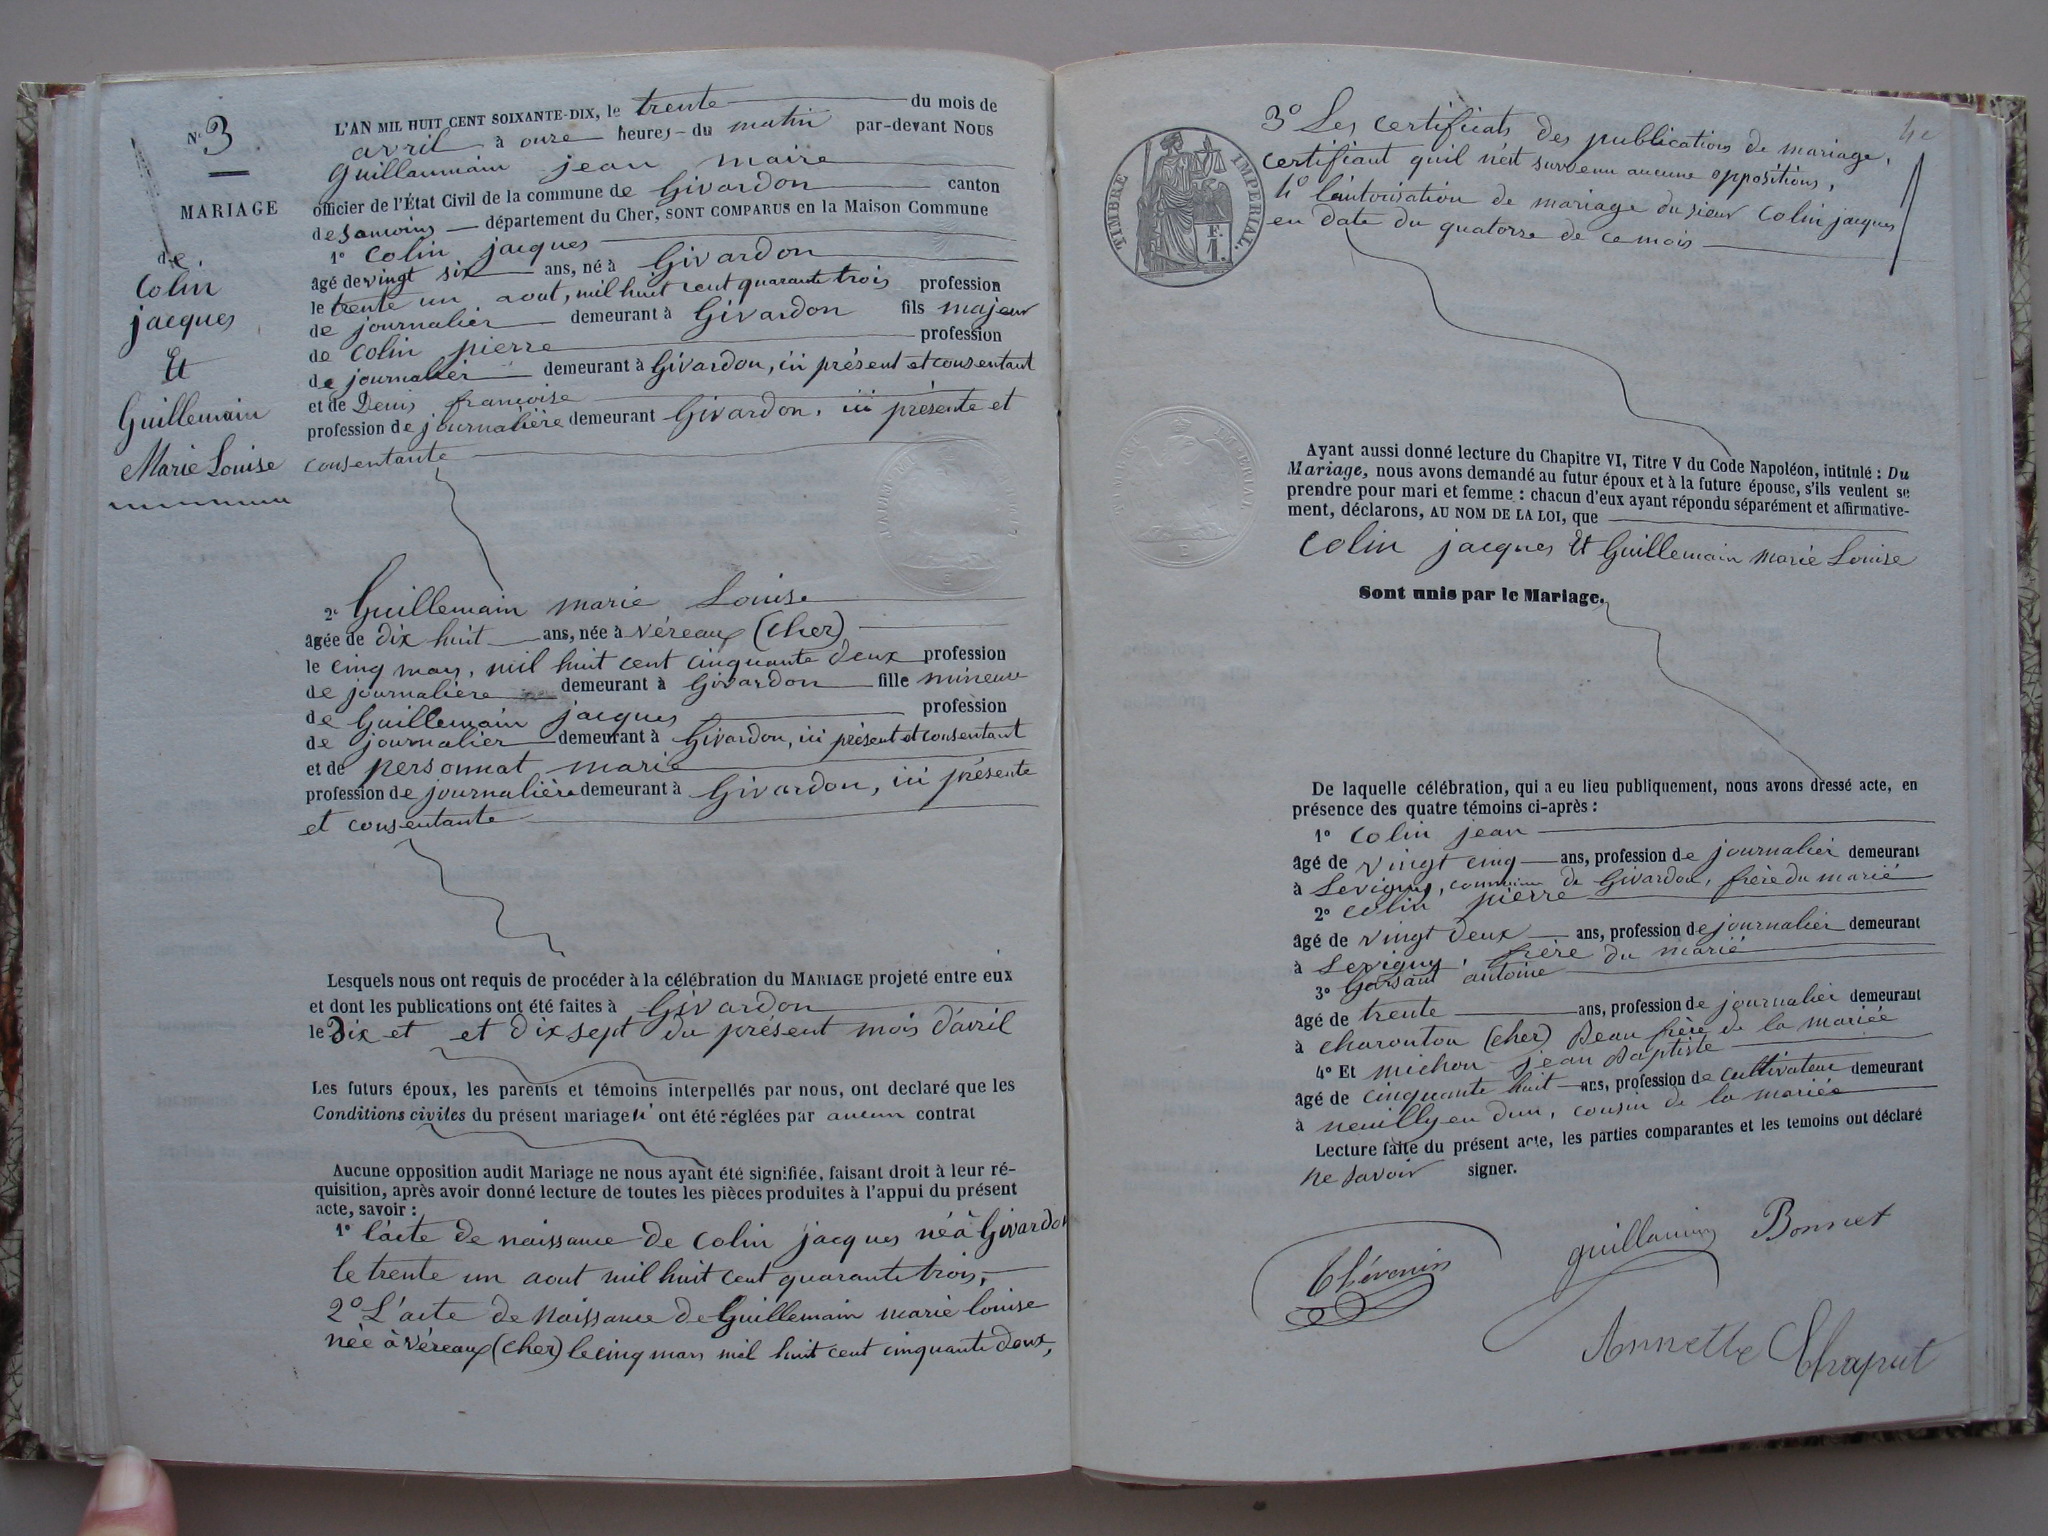 N° 3
MARIAGE
de
Colin
jacques
Et
Guillemain
Marie Louise
L'AN MIL HUIT CENT SOIXANTE-DIX, le trente du mois de
avril à onze heures du matin par-devant NOUS
Guillaumain jean maire
officier de l'État Civil de la commune de Givardon canton
de Sancoins département du Cher, SONT COMPARUS en la Maison Commune
1° Colin jacques
âgé de vingt six ans, né à Givardon
le trente un aout, mil huit cent quarante trois profession
de journalier demeurant à Givardon fils majeur
de Colin pierre profession
de journalier demeurant à Givardon, ici présent et consentant
et de Denis françoise
profession de journalière demeurant Givardon, ici présente et
consentante
2° Guillemain marie Louise
âgée de dix huit ans, née à Véreaux (Cher)
le cinq mars, mil huit cent cinquante deux profession
de journalière demeurant à Givardon fille mineure
de Guillemain jacques profession
de journalier demeurant à Givardon, ici présent et consentant
et de personnat marie
profession de journalière demeurant à Givardon, ici présente
et consentante
Lesquels nous ont requis de procéder à la célébration du MARIAGE projeté entre eux
et dont les publications ont été faites à Givardon
le Dix et et dix sept du présent mois d'avril
Les futurs époux, les parents et témoins interpellés par nous, ont declaré que les
Conditions civiles du présent mariage n' ont été réglées par aucun contrat
Aucune opposition audit Mariage ne nous ayant été signifiée, faisant droit à leur ré-
quisition, après avoir donné lecture de toutes les pièces produites à l'appui du présent
acte, savoir :
1° l'acte de naissance de Colin jacques né à Givardon
le trente un aout mil huit cent quarante trois,
2° L'acte de Naissance de Guillemain marie louise
née à Véreaux (Cher) le cinq mars mil huit cent cinquante deux,
3° Les certificats des publications de mariage,
certifiant qu'il n'est survenu aucune oppositions,
4° l'autorisation de mariage du sieur Colin jacques
en date du quatorze de ce mois
TIMBRE IMPERIAL.
F.
1.
Ayant aussi donné lecture du Chapitre VI, Titre V du Code Napoléon, intitulé : Du
Mariage, nous avons demandé au futur époux et à la future épouse, s'ils veulent se
prendre pour mari et femme : chacun d'eux ayant répondu séparément et affirmative-
ment, déclarons, AU NOM DE LA LOI, que
Colin jacques Et Guillemain marie Louise
Sont unis par le Mariage.
De laquelle célébration, qui a eu lieu publiquement, nous avons dressé acte, en
présence des quatre témoins ci-après :
1° Colin jean
âgé de vingt cinq ans, profession de journalier demeurant
à Sevigny, commune de Givardon, frère du marié
2° Colin pierre
âgé de vingt deux ans, profession de journalier demeurant
à Sevigny, frère du marié
3° Garsant antoine
âgé de trente ans, profession de journalier demeurant
à charenton (cher) Beau frère de la mariée
4° Et michon jean Baptiste
âgé de cinquante huit ans, profession de cultivateur demeurant
à neuilly en dun, cousin de la mariée
Lecture faite du présent acte, les parties comparantes et les temoins ont déclaré
ne savoir signer.
Thévenin guillaumin Bonnet
Annette Chaput